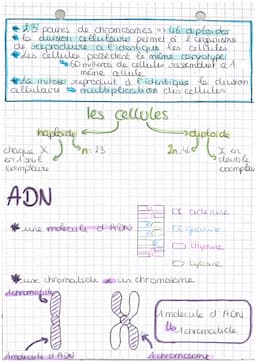 • 23 paires de chromosomes => 46 diploïdes
• la division cellulaire permet à l'organisme
de reproduire à l'identique les cellules
• les cellules possèdent le même caryotype
60 milliards de cellules ressemblent à 1
même cellule
• la mitose reproduit à l'identique la division
cellulaire => multiplication des cellules
les cellules
haploïde
diploïde
chaque X
en 1 seul
exemplaire
n: 23
2n: 46
X en
double
exemplaire
ADN
• une molécule d'ADN
adénine
guanine
thymine
cytosine
• une chromatide un chromosome
1 chromatide
1 molécule d'ADN
1 chromatide
molécule d'ADN
1 chromosome